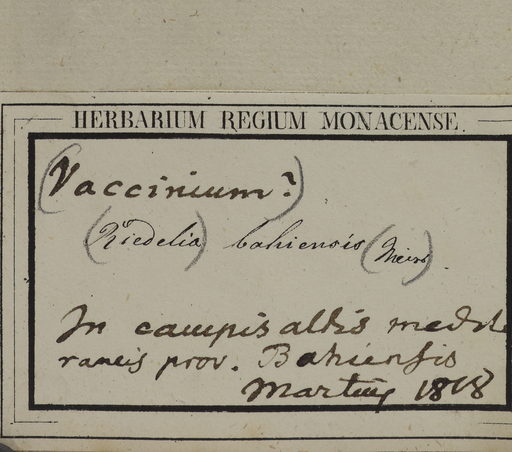 HERBARIUM REGIUM MONACENSE.
(Vaccinium?)
(Riedelia) bahiensis (Meisn)
In campis altis mediter
raneis prov. Bahiensis
Martius 1818